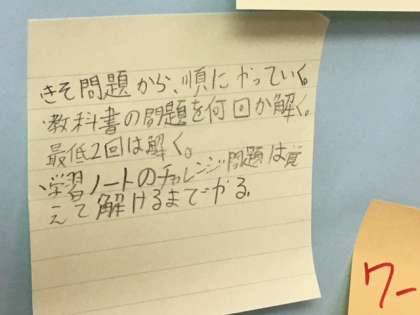 きそ問題から、順にやっていく。
・教科書の問題を何回か解く。
最低2回は解く。
・学習ノートのチャレンジ問題は覚
えて解けるまでやる。
ワー